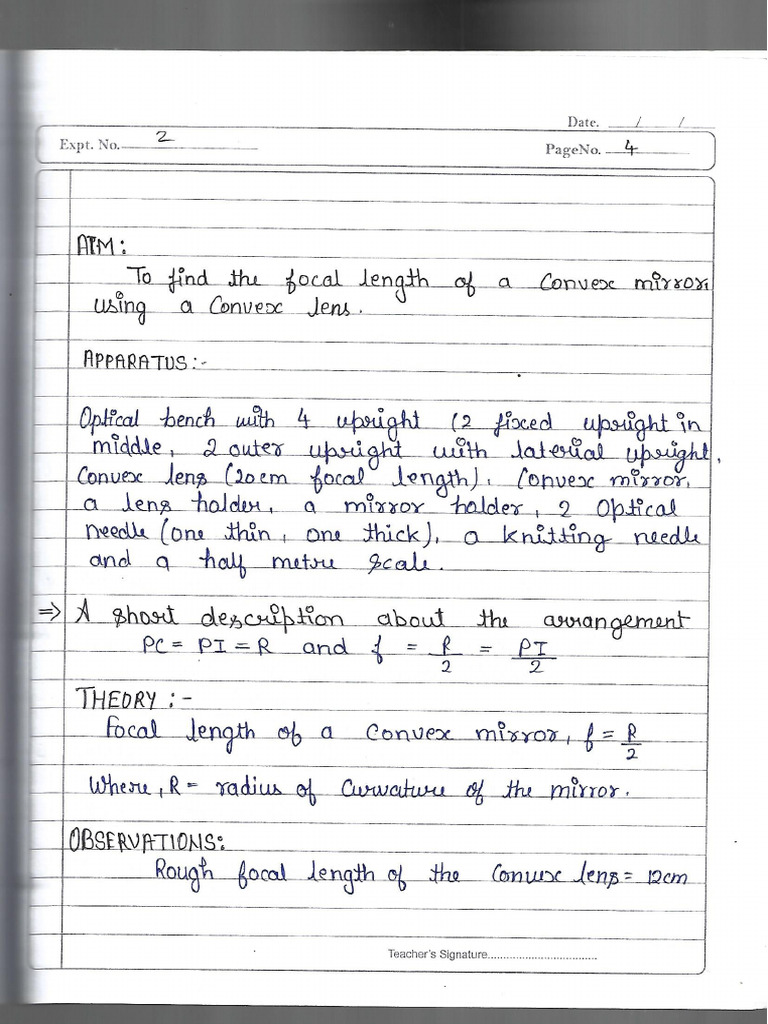 Date. __/__/__
Expt. No. 2
PageNo. 4
AIM:
To find the focal length of a convex mirror
using a convex lens.
APPARATUS:-
Optical bench with 4 upright (2 fixed upright in
middle, 2 outer upright with laterial upright,
Convex lens (20cm focal length). Convex mirror,
a lens holder, a mirror holder, 2 Optical
needle (one thin, one thick), a knitting needle
and a half metre scale.
⇒ A short description about the arrangement
PC = PI = R and f = R/2 = PI/2
THEORY:-
Focal length of a convex mirror, f = R/2
Where, R = radius of curvature of the mirror.
OBSERVATIONS:
Rough focal length of the convex lens = 12cm
Teacher's Signature.....................................